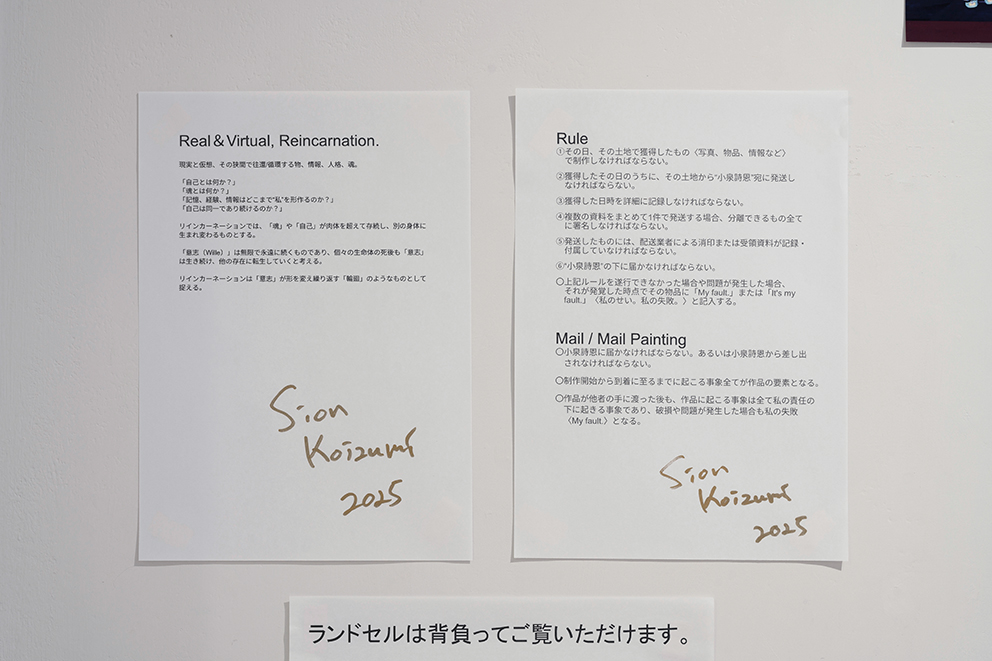 Real & Virtual, Reincarnation.
現実と仮想、その狭間で往還/循環する物、情報、人格、魂。
「自己とは何か?」
「魂とは何か?」
「記憶、経験、情報はどこまで“私”を形作るのか?」
「自己は同一であり続けるのか?」
リインカーネーションでは、「魂」や「自己」が肉体を超えて存続し、別の身体に
生まれ変わるものとする。
「意志（Wille）」は無限で永遠に続くものであり、個々の生命体の死後も「意志」
は生き続け、他の存在に転生していくと考える。
リインカーネーションは「意志」が形を変え繰り返す「輪廻」のようなものとして
捉える。
Sion
Koizumi
2025
Rule
①その日、その土地で獲得したもの〈写真、物品、情報など〉
で制作しなければならない。
②獲得したその日のうちに、その土地から“小泉詩恩”宛に発送し
なければならない。
③獲得した日時を詳細に記録しなければならない。
④複数の資料をまとめて1件で発送する場合、分離できるもの全て
に署名しなければならない。
⑤発送したものには、配送業者による消印または受領資料が記録・
付属していなければならない。
⑥“小泉詩恩”の下に届かなければならない。
〇上記ルールを遂行できなかった場合や問題が発生した場合、
それが発覚した時点でその物品に「My fault.」または「It's my
fault.」〈私のせい。私の失敗。〉と記入する。
Mail / Mail Painting
〇小泉詩恩に届かなければならない。あるいは小泉詩恩から差し出
されなければならない。
〇制作開始から到着に至るまでに起こる事象全てが作品の要素となる。
〇作品が他者の手に渡った後も、作品に起こる事象は全て私の責任の
下に起きる事象であり、破損や問題が発生した場合も私の失敗
〈My fault.〉となる。
Sion
Koizumi
2025
ランドセルは背負ってご覧いただけます。